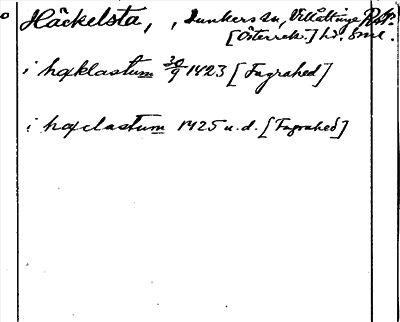 Häckelsta, , Dunkers sn, Villåttinge
[Österrek.] hd. Sml.
i hæklastum 30/9 1423 [Fagrahed]
i hæclastum 1425 u.d. [Fagrahed]